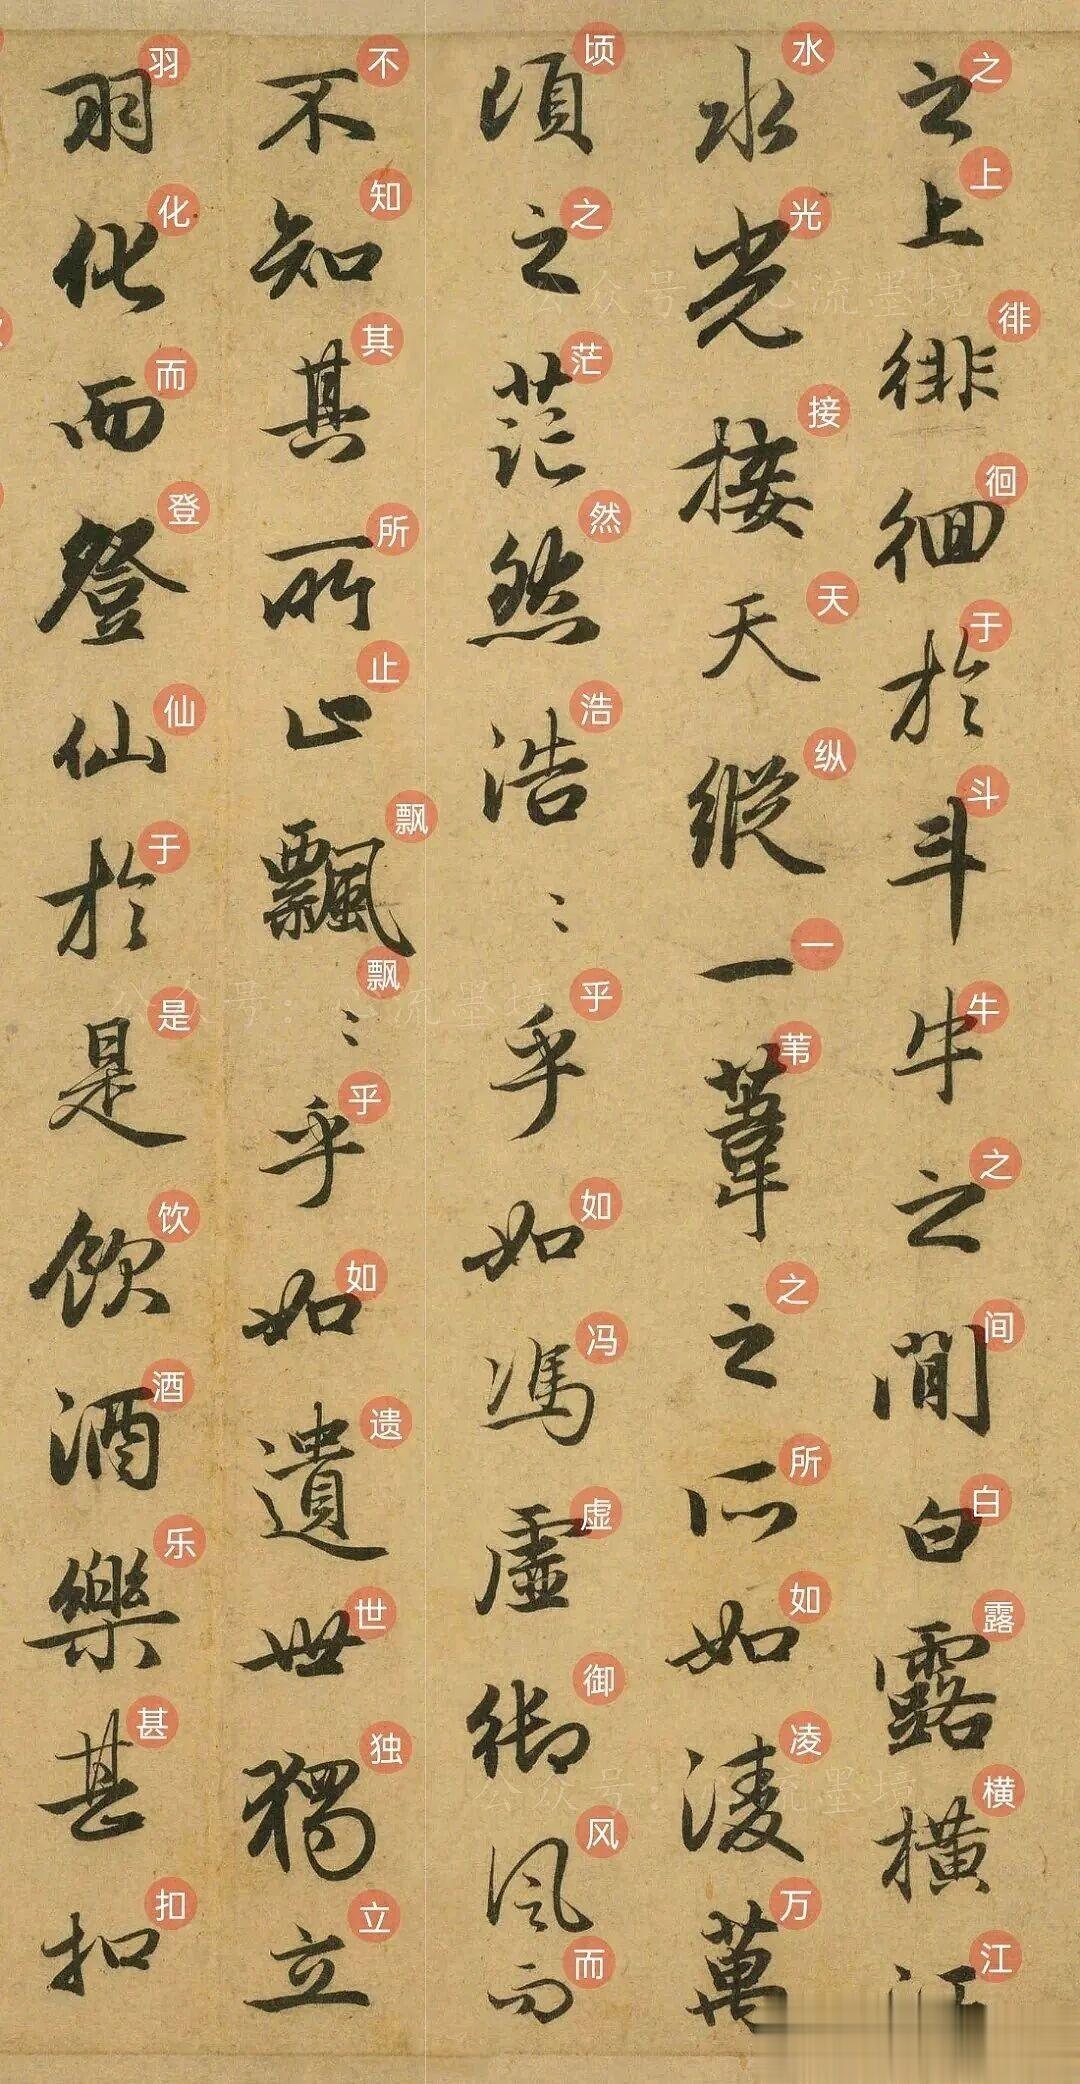 之上徘徊於斗牛之間白露橫江
之上徘徊于斗牛之间白露横江
水光接天縱一葦之所如淩萬
水光接天纵一苇之所如凌万
頃之茫然浩〻乎如馮虛御風而
顷之茫然浩乎如冯虚御风而
不知其所止飄〻乎如遺世獨立
不知其所止飘飘乎如遗世独立
羽化而登仙於是飲酒樂甚扣
羽化而登仙于是饮酒乐甚扣
公众号·心流墨境
公众号·心流墨境
公众号·心流墨境